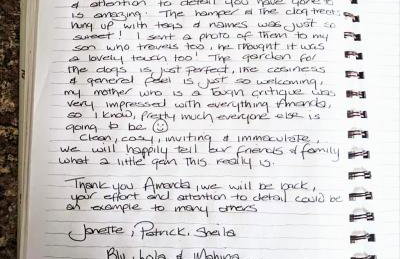 & attention to detail you have gone to
is amazing. The hamper & the dog treats
hung up with tags & names was just so
sweet! I sent a photo of them to my
son who travels too, he thought it was
a lovely touch too! The garden for
the dogs is just perfect, the cosiness
& general feel is just so welcoming,
my mother who is a Tough critique was
very impressed with everything Amanda,
so I know, pretty much everyone else is
going to be ☺
Clean, cosy, inviting & immaculate,
we will happily tell our friends & family
what a little gem this really is.
Thank you Amanda, we will be back,
your effort and attention to detail could be
an example to many others
Janette, Patrick, Sheila
Blu, Lola &